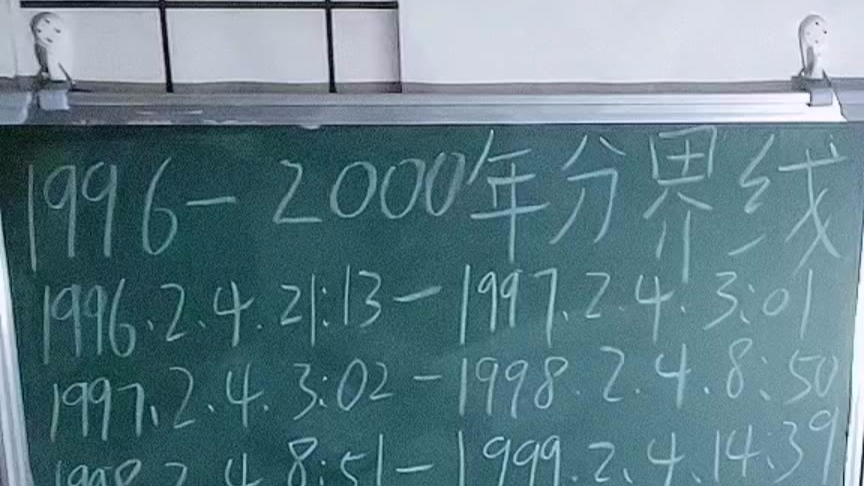 1996-2000年分界线
1996.2.4.21:13-1997.2.4.3:01
1997.2.4.3:02-1998.2.4.8:50
1998.2.4.8:51-1999.2.4.14:39